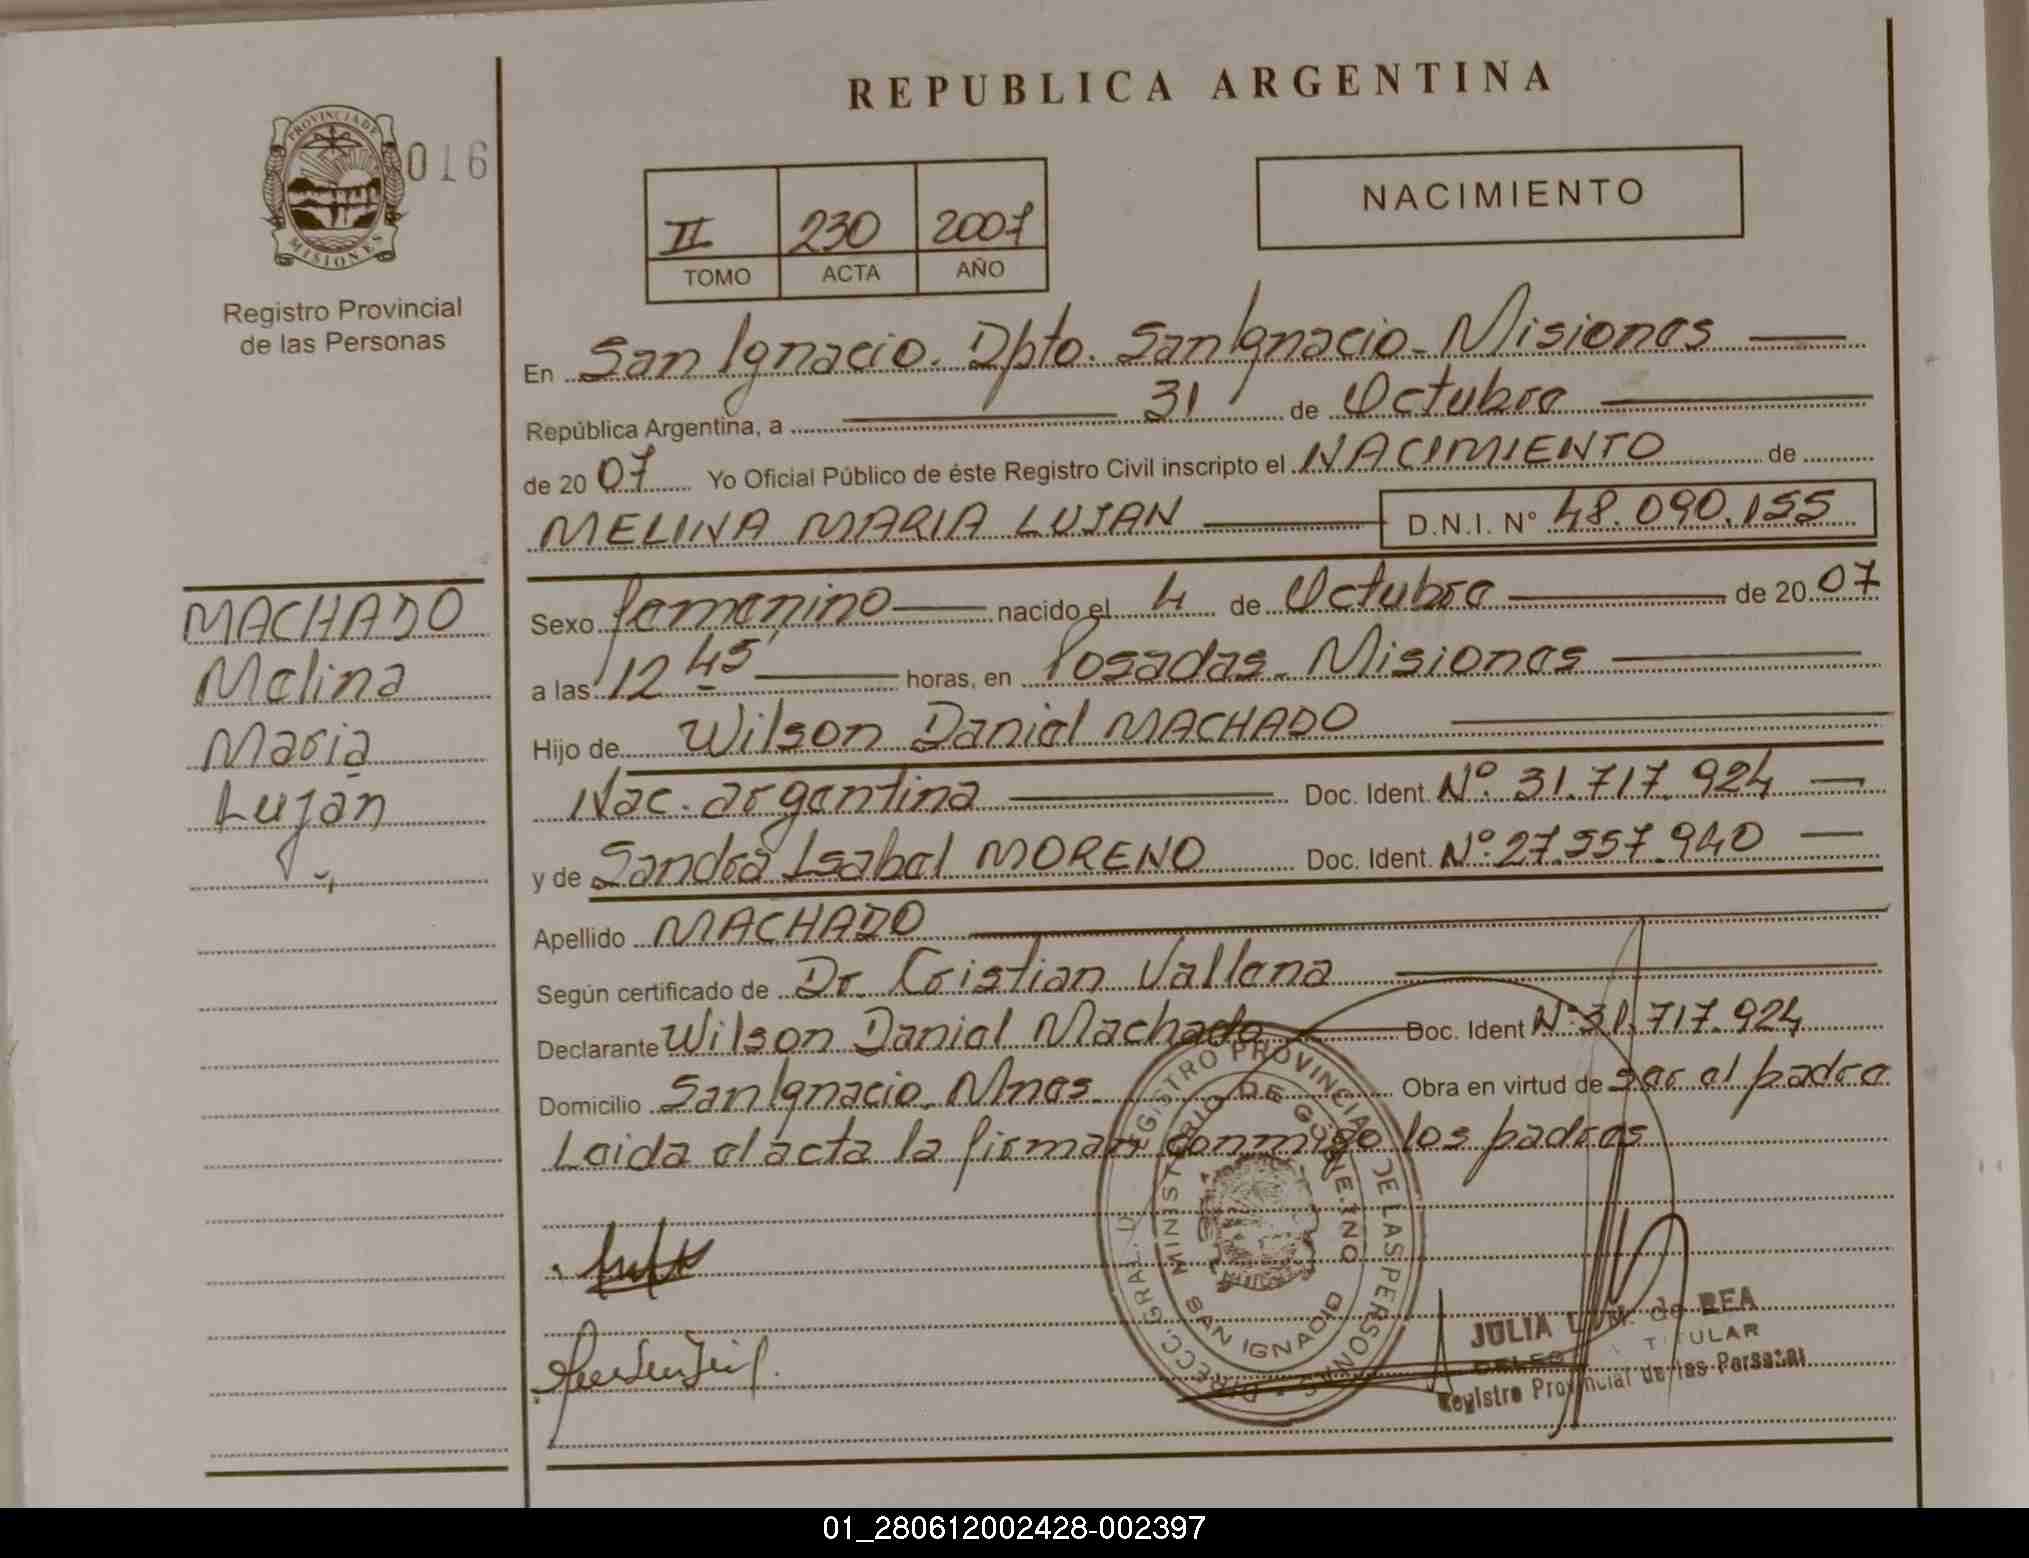 REPUBLICA ARGENTINA
PROVINCIA DE
MISIONES
016
Registro Provincial
de las Personas
II 230 2007
TOMO ACTA AÑO
NACIMIENTO
En San Ignacio. Dpto. San Ignacio - Misiones
República Argentina, a 31 de Octubre
de 20 07 Yo Oficial Público de éste Registro Civil inscripto el NACIMIENTO de
MELINA MARIA LUJAN D.N.I. N° 48.090.155
MACHADO
Melina
Maria
Luján
Sexo femenino nacido el 4 de Octubre de 20 07
a las 12 45 horas, en Posadas - Misiones
Hijo de Wilson Daniel MACHADO
Nac. argentina Doc. Ident. Nº. 31.717.924
y de Sandra Isabel MORENO Doc. Ident. Nº. 27.557.940
Apellido MACHADO
Según certificado de Dr. Cristian Vallena
Declarante Wilson Daniel Machado Doc. Ident Nº 31.717.924
Domicilio San Ignacio. Mnes. Obra en virtud de ser el padre
Leida el acta la firman conmigo los padres
DIRECC. GRAL. REGISTRO PROVINCIAL DE LAS PERSONAS
MINISTERIO DE GOBIERNO
SAN IGNACIO
JULIA M. de REA
TITULAR
Registro Provincial de las Personas
01_280612002428-002397